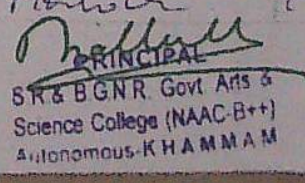 PRINCIPAL
SR & BGNR. Govt Arts &
Science College (NAAC-B++)
Autonomous-KHAMMAM